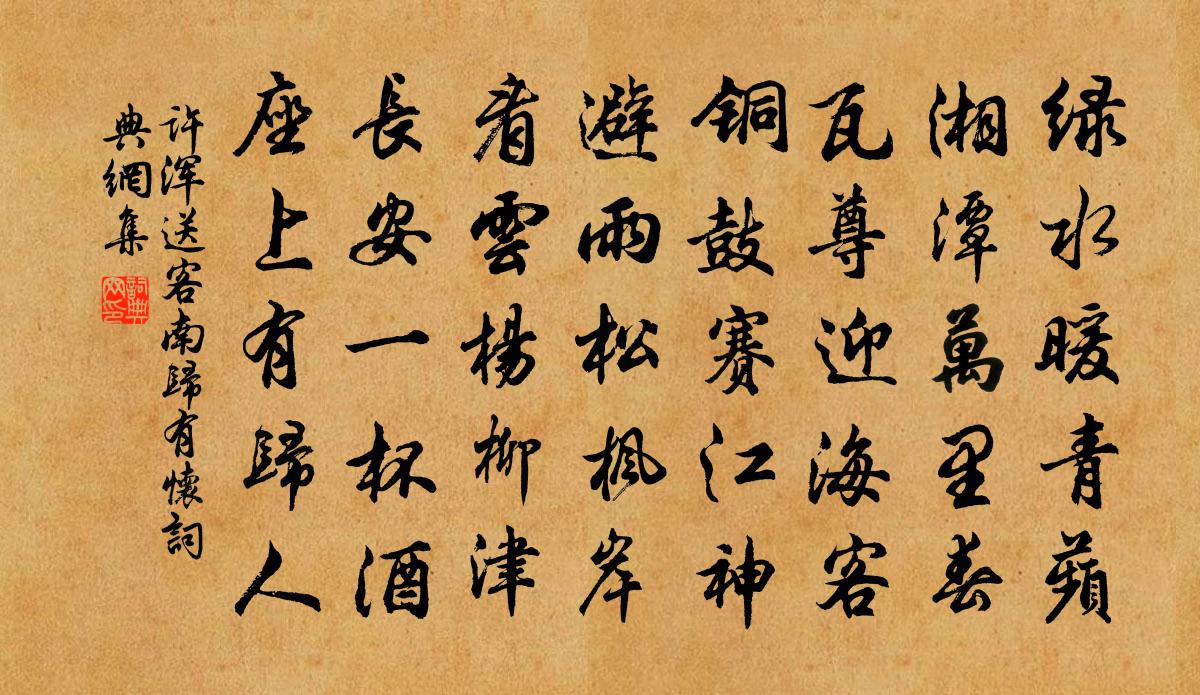 绿水暖青蘋
湘潭萬里春
瓦尊迎海客
銅鼓賽江神
避雨松楓岸
看雲楊柳津
長安一杯酒
座上有歸人
许渾送客南歸有懷詞
典網集
詞典网印